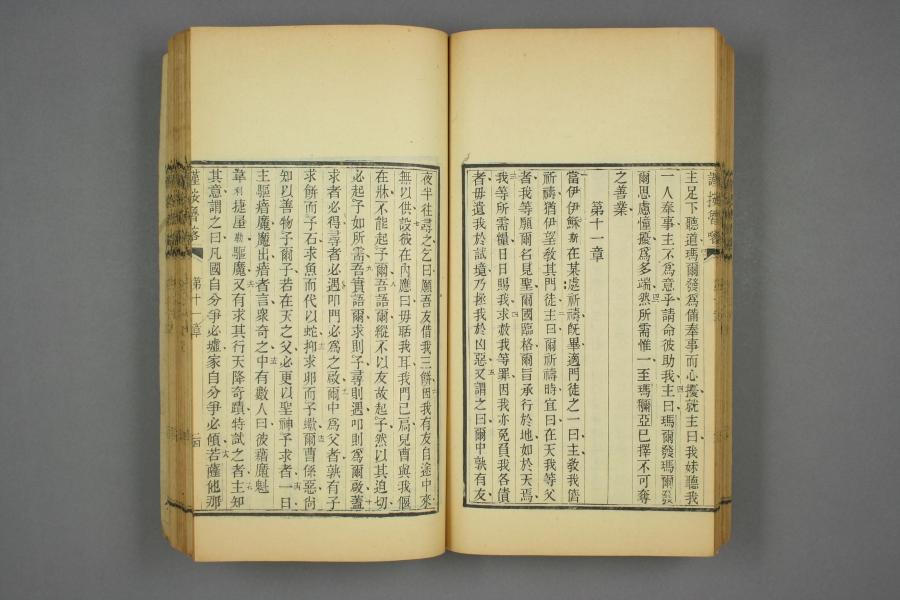 主足下聽道瑪爾發爲備奉事而心擾就主曰我妹聽我
一人奉事主不爲意乎請命彼助我主曰瑪爾發瑪爾發
爾思慮憧擾爲多端然所需惟一至瑪彌亞已擇不可奪
之善業
第十一章
當伊伊穌斯在某處祈禱旣畢適門徒之一曰主敎我儕
祈禱猶伊望敎其門徒主曰爾祈禱時宜曰在天我等父
者我等願爾名見聖爾國臨格爾旨承行於地如於天焉
我等所需糧日日賜我求赦我等罪因我亦免負我各債
者毋遺我於試境乃拯我於凶惡又謂之曰爾中孰有友
夜半往尋之乞曰願吾友借我三餅因我有友自途中來
無以供設彼在內應曰毋聒我耳我門已扃兒曹與我偃
在牀不能起予爾吾語爾縱不以友故起予然以其迫切
必起予如所需吾實語爾求則予尋則遇叩則爲爾啟蓋
求者必得尋者必遇叩門必爲之啟爾中爲父者孰有子
求餅而予石求魚而代以蛇抑求卵而予蠍爾曹係惡尙
知以善物予爾子若在天之父必更以聖神予求者一日
主驅瘖魔魔出瘖者言衆奇之中有數人曰彼藉魔魁
韋利捷屋勒驅魔又有求其行天降奇蹟特試之者主知
其意謂之曰凡國自分爭必墟家自分爭必傾若薩他那
第十一章